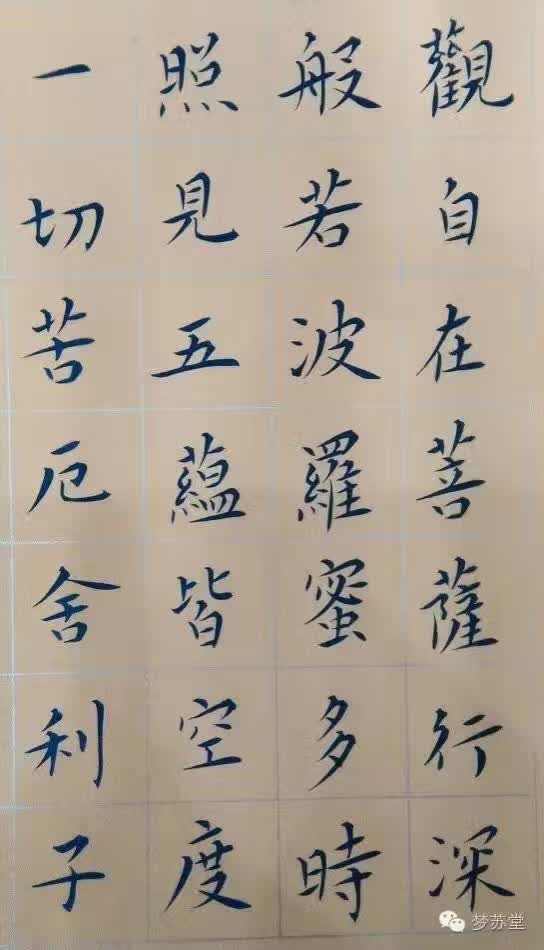 觀自在菩薩行深
般若波羅蜜多時
照見五蘊皆空度
一切苦厄舍利子
梦苏堂